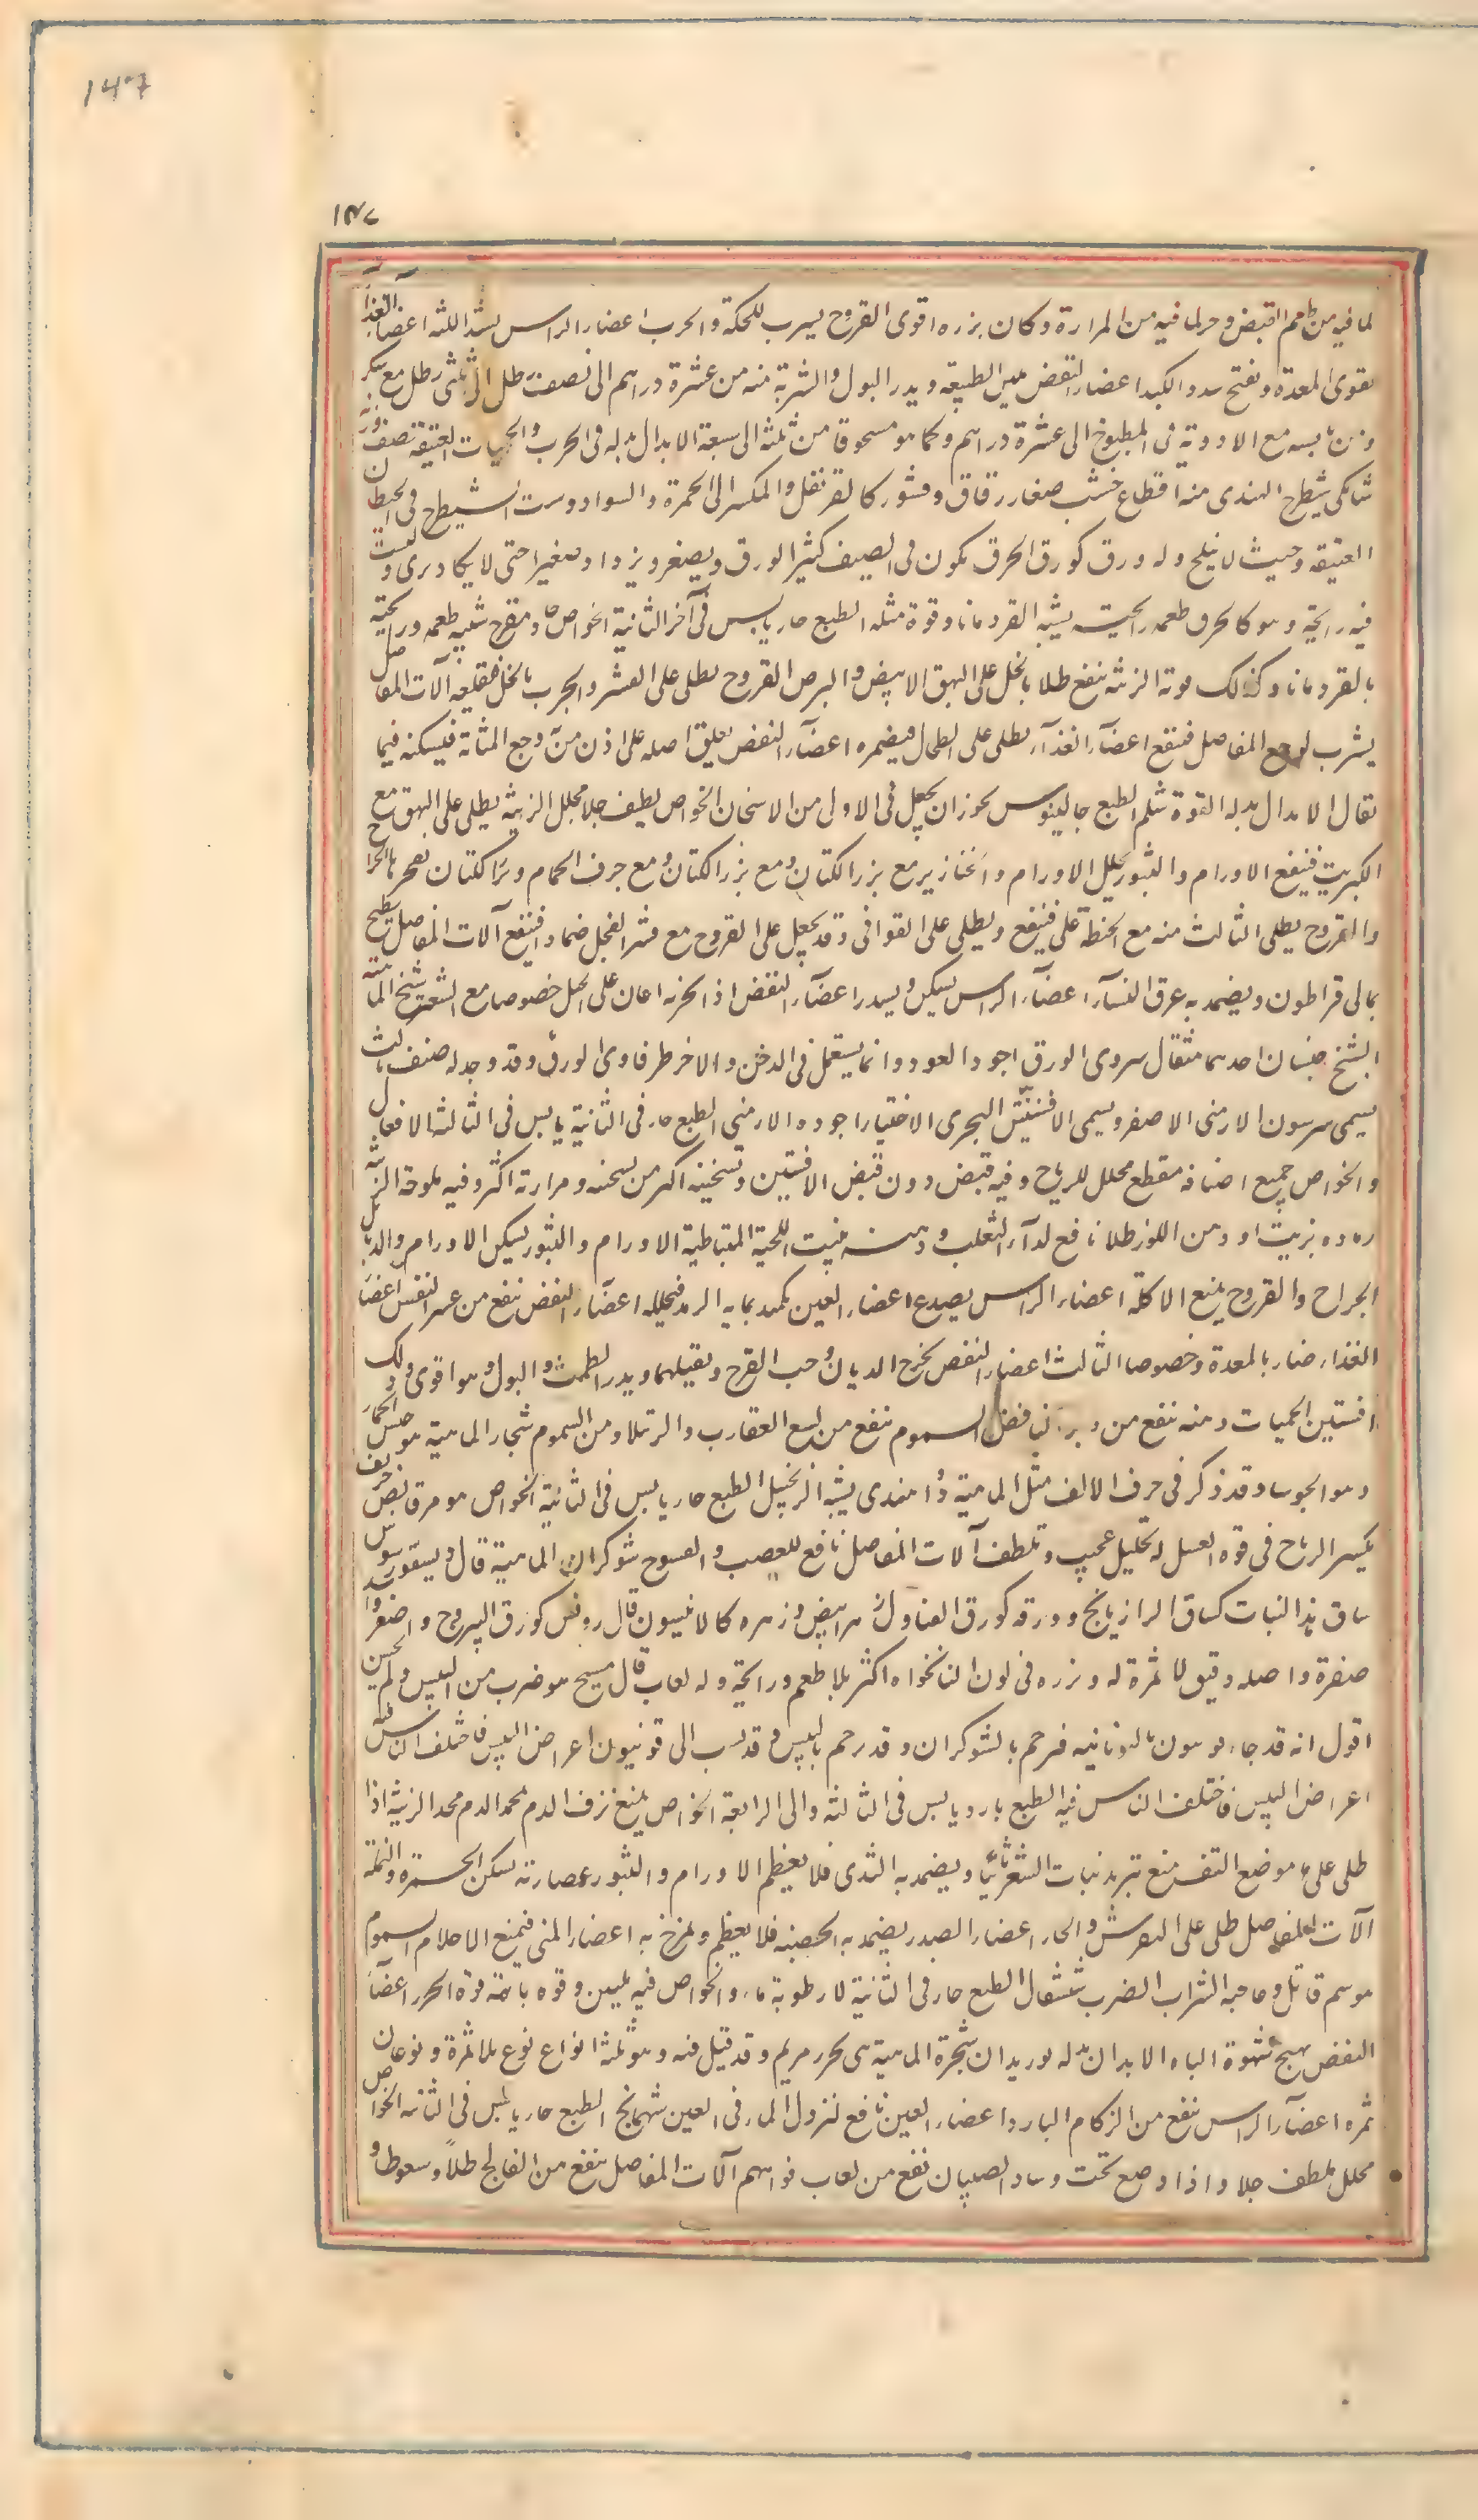 147
١٤٧
لما فيه من طعم القبض وحر لما فيه من المرارة وكان بزره اقوى القروح يسرب للحكة والجرب اعضاء الراس يشد اللثه اعضاء الغذآ
يقوى المعدة ويفتح سدد الكبد اعضاء النفض يلين الطبيعه ويدر البول والشربة منه من عشرة دراهم الى نصف رطل الى ثلثى رطل مع سكر
ومن يابسه مع الادوية فى المطبوخ الى عشرة دراهم وكما هو مسحوقا من ثلثه الى سبعة الابدال بدله فى الجرب والحميات العتيقه نصف وزنه
شاهكى شيطرح الهندى منه اقطاع خشب صغار رقاق وقشور كالقرنفل والمكسر الى الحمرة والسواد وست الشيطرح فى الحيطان
العتيقه وحيث لا يثلج وله ورق كورق الحرف يكون فى الصيف كثير الورق ويصغر ويزداد صغيرا حتى لا يكاد يرى وليست
فيه رايحة وهو كالحرف طعمه رايحته يشبه القردمانا وقوة مثله الطبع حار يابس فى آخر الثانية الخواص حاد مقرح شبيه طعمه ورايحته
بالقردمانا وكذلك قوته الزينه ينفع طلا بالخل على البهق الابيض والبرص القروح يطلى على العشر والجرب بالخل فيقلعه آلات المفاصل
يشرب لوجع المفاصل فينفع اعضآء الغذآء يطلى على الطحال فيضمره اعضآء النفض يعلق اصله على اذن من به وجع المثانة فيسكنه فيما
يقال الابدال بدله القوة شلم الطبع جالينوس يجوز ان يجعل فى الاولى من الاسخان الخواص لطيف جلا محلل الزينه يطلى على البهق مع
الكبريت فينفع الاورام والبثور يحلل الاورام والخنازير مع بزر الكتان ومع بزر الكتان ومع جرف الحمام وبزر الكتان يفجر الجراح
والقروح يطلى الثالث منه مع الحنطة على فينفع ويطلى على القوافى وقد يجعل على القروح مع قشر الفجل ضمادا فينفع آلات المفاصل يطبخ
بمالى قراطون ويضمد به عرق النسآء اعضآء الراس يسكن ويسدر اعضآء النفض اذا بخر به اعان على الحبل خصوصا مع الشعير شيخ الماهية
الشيخ جنسان احدهما مثقال سروى الورق اجود العود وانما يستعمل فى الدخن والاخر طرفاوى الورق وقد وجد له صنف ثالث
يسمى سرسون الارمنى الاصفر ويسمى الافسنتين البحرى الاختيار اجوده الارمنى الطبع حار فى الثانية يابس فى الثالثه الافعال
والخواص جميع اصنافه مقطع محلل للرياح وفيه قبض دون قبض الافسنتين وتسخينه اكثر من تسخنه ومرارته اكثر وفيه ملوحة الزينه
رماده بزيت او دهن اللوز طلا نافع لدآء الثعلب ودهنه ينبت اللحية المتباطية الاورام والبثور يسكن الاورام والدماميل
الجراح والقروح يمنع الاكلة اعضاء الراس يصدع اعضاء العين يكمد بمايه الرمد فيحلله اعضآء النفض ينفع من عسر النفس اعضآء
الغذاء ضار بالمعدة وخصوصا الثالث اعضاء النفض يخرج الديدان وحب القرح ويقتلهما ويدر الطمث والبول وهو اقوى فى ذلك
افسنتين الحميات دهنه ينفع من برد النافض السموم ينفع من لسع العقارب والرتيلا ومن السموم شجار الماهية هو خس الحمار
وهو الجوسا وقد ذكر فى حرف الالف مثل الماهية دوا هندى يشبه الزنجبيل الطبع حار يابس فى الثانية الخواص هو مر قابض حريف
يكسر الرياح فى قوه العسل له تحليل عجيب وتلطف آلات المفاصل نافع للعصب والفسوخ شوكران الماهية قال ديسقوريدوس
ساق هذا النبات كساق الرازيانج وورقه كورق القثا وله زهر ابيض وزهره كالانيسون قال روفس كورق اليبروح واصفر
صفرة واصله دقيق لا ثمرة له وبزره فى لون النانخواه اكثر بلا طعم ورايحة وله لعاب قال مسيح هو ضرب من البيش ولم يحسن
اقول انه قد جاء قونيون باليونانيه فترجم بالشوكران وقد ترجم بالبيش وقد نسب الى قونيون اعراض البيش فاختلف الناس فيه
اعراض البيش فاختلف الناس فيه الطبع بارد يابس فى الثالثه والى الرابعة الخواص يمنع نزف الدم محمد الدم محد الزينه اذا
طلى على موضع النتف منع تبريد نبات الشعر ثانيا ويضمد به الثدى فلا يعظم الاورام والبثور عصارته تسكن الحمرة والنملة
آلات المفاصل طلى على النقرس والحار اعضاء الصدر يضمد به الخصيه فلا يعظم ويمرخ به اعضاء المنى فيمنع الاحلام السموم
هو سم قاتل وصاحبه الشراب الصرف شقاقل الطبع حار فى الثانية لا رطوبة ماء والخواص فيه تليين وقوه باهية قوة الجزر اعضآء
النفض يهيج شهوة الباه الابدال بدله بوزيدان شجرة الماهية هى بخور مريم وقد قيل فيه وهو ثلثة انواع نوع بلا ثمرة ونوعان
ثمره اعضآء الراس ينفع من الزكام البارد اعضاء العين نافع لنزول الماء فى العين شهدانج الطبع حار يابس فى الثانيه الخواص
محلل ملطف جلا واذا وضع تحت وساد الصبيان نفع من لعاب فواههم آلات المفاصل ينفع من الفالج طلآ وسعوطا و